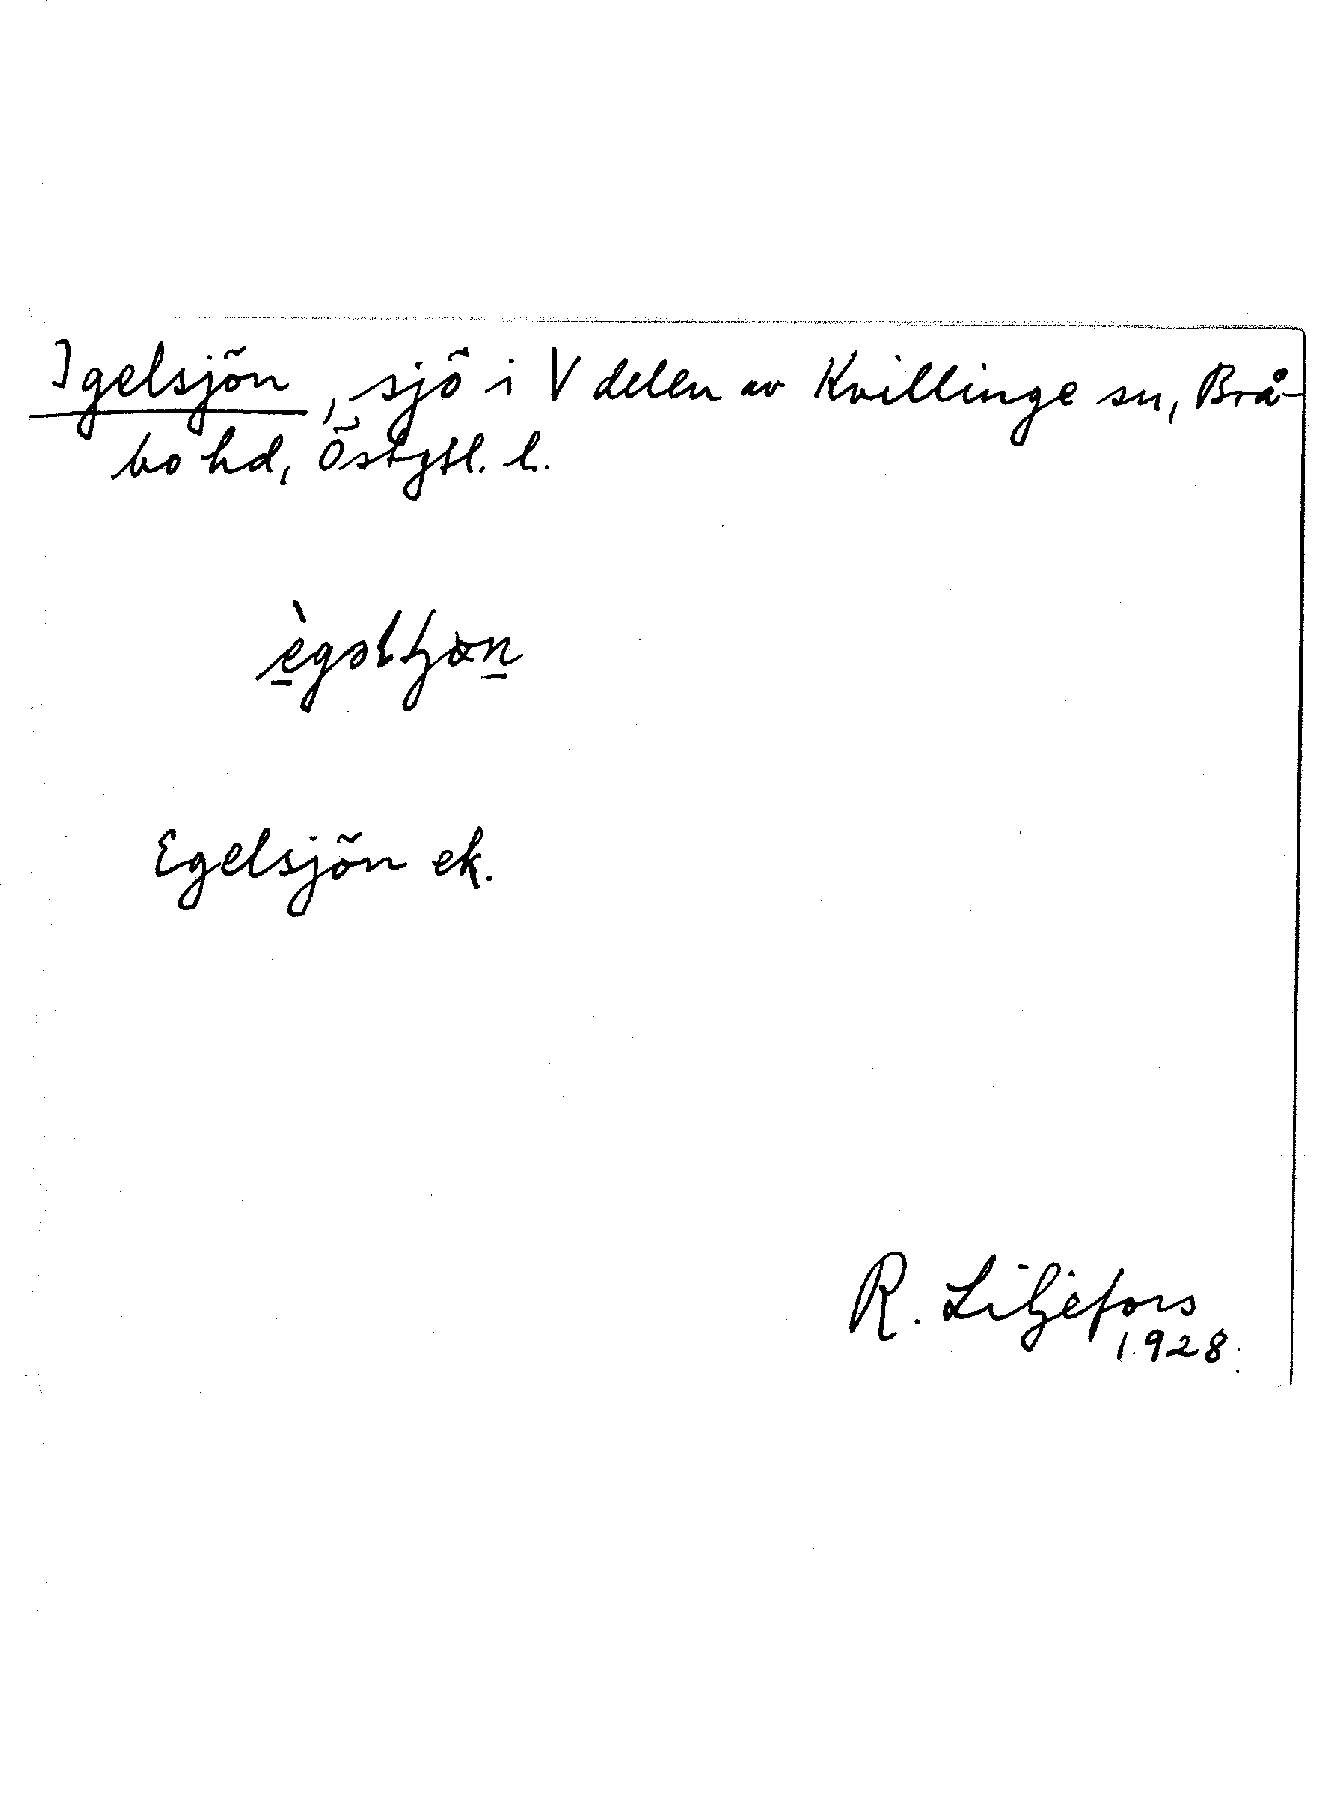 Igelsjön, sjö i V delen av Kvillinge sn, Brå-
bo hd, Östgtl. l.
Egelsjön ek.
R. Liljefors
1928.